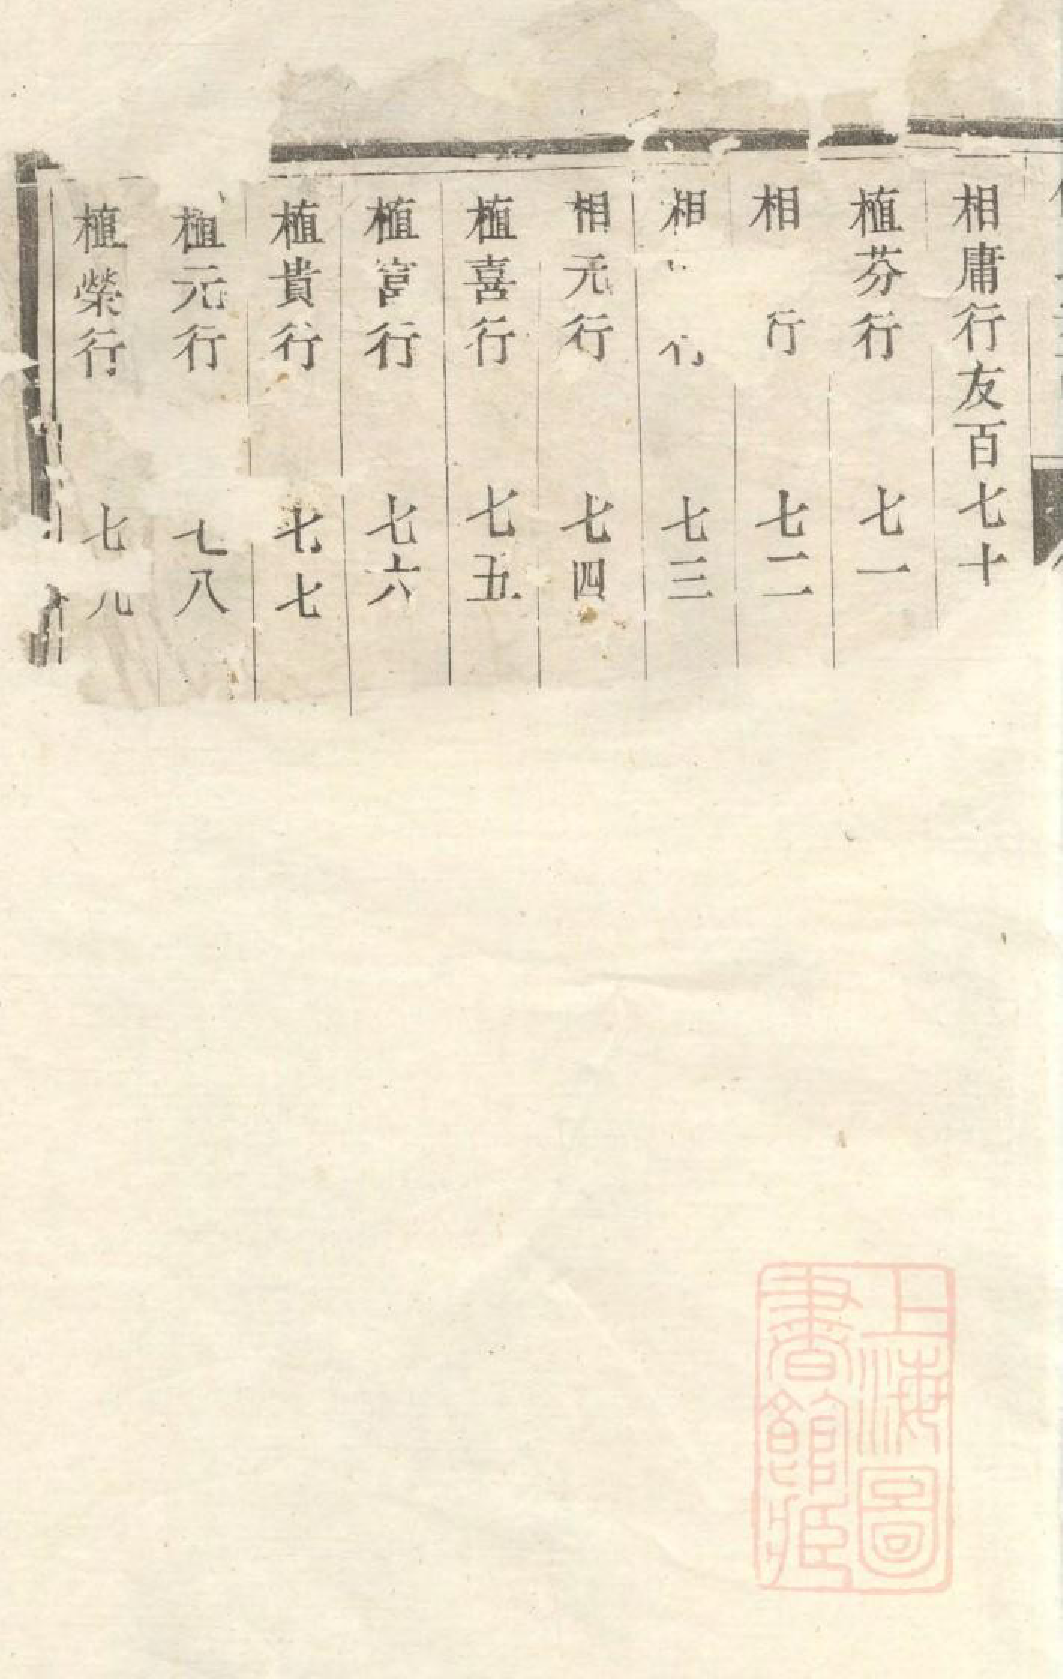 相庸行友百七十
植芬行 七一
相 行 七二
相 七三
相元行 七四
植喜行 七五
植富行 七六
植貴行 七七
植元行 七八
植榮行 七九
上海圖
書館藏